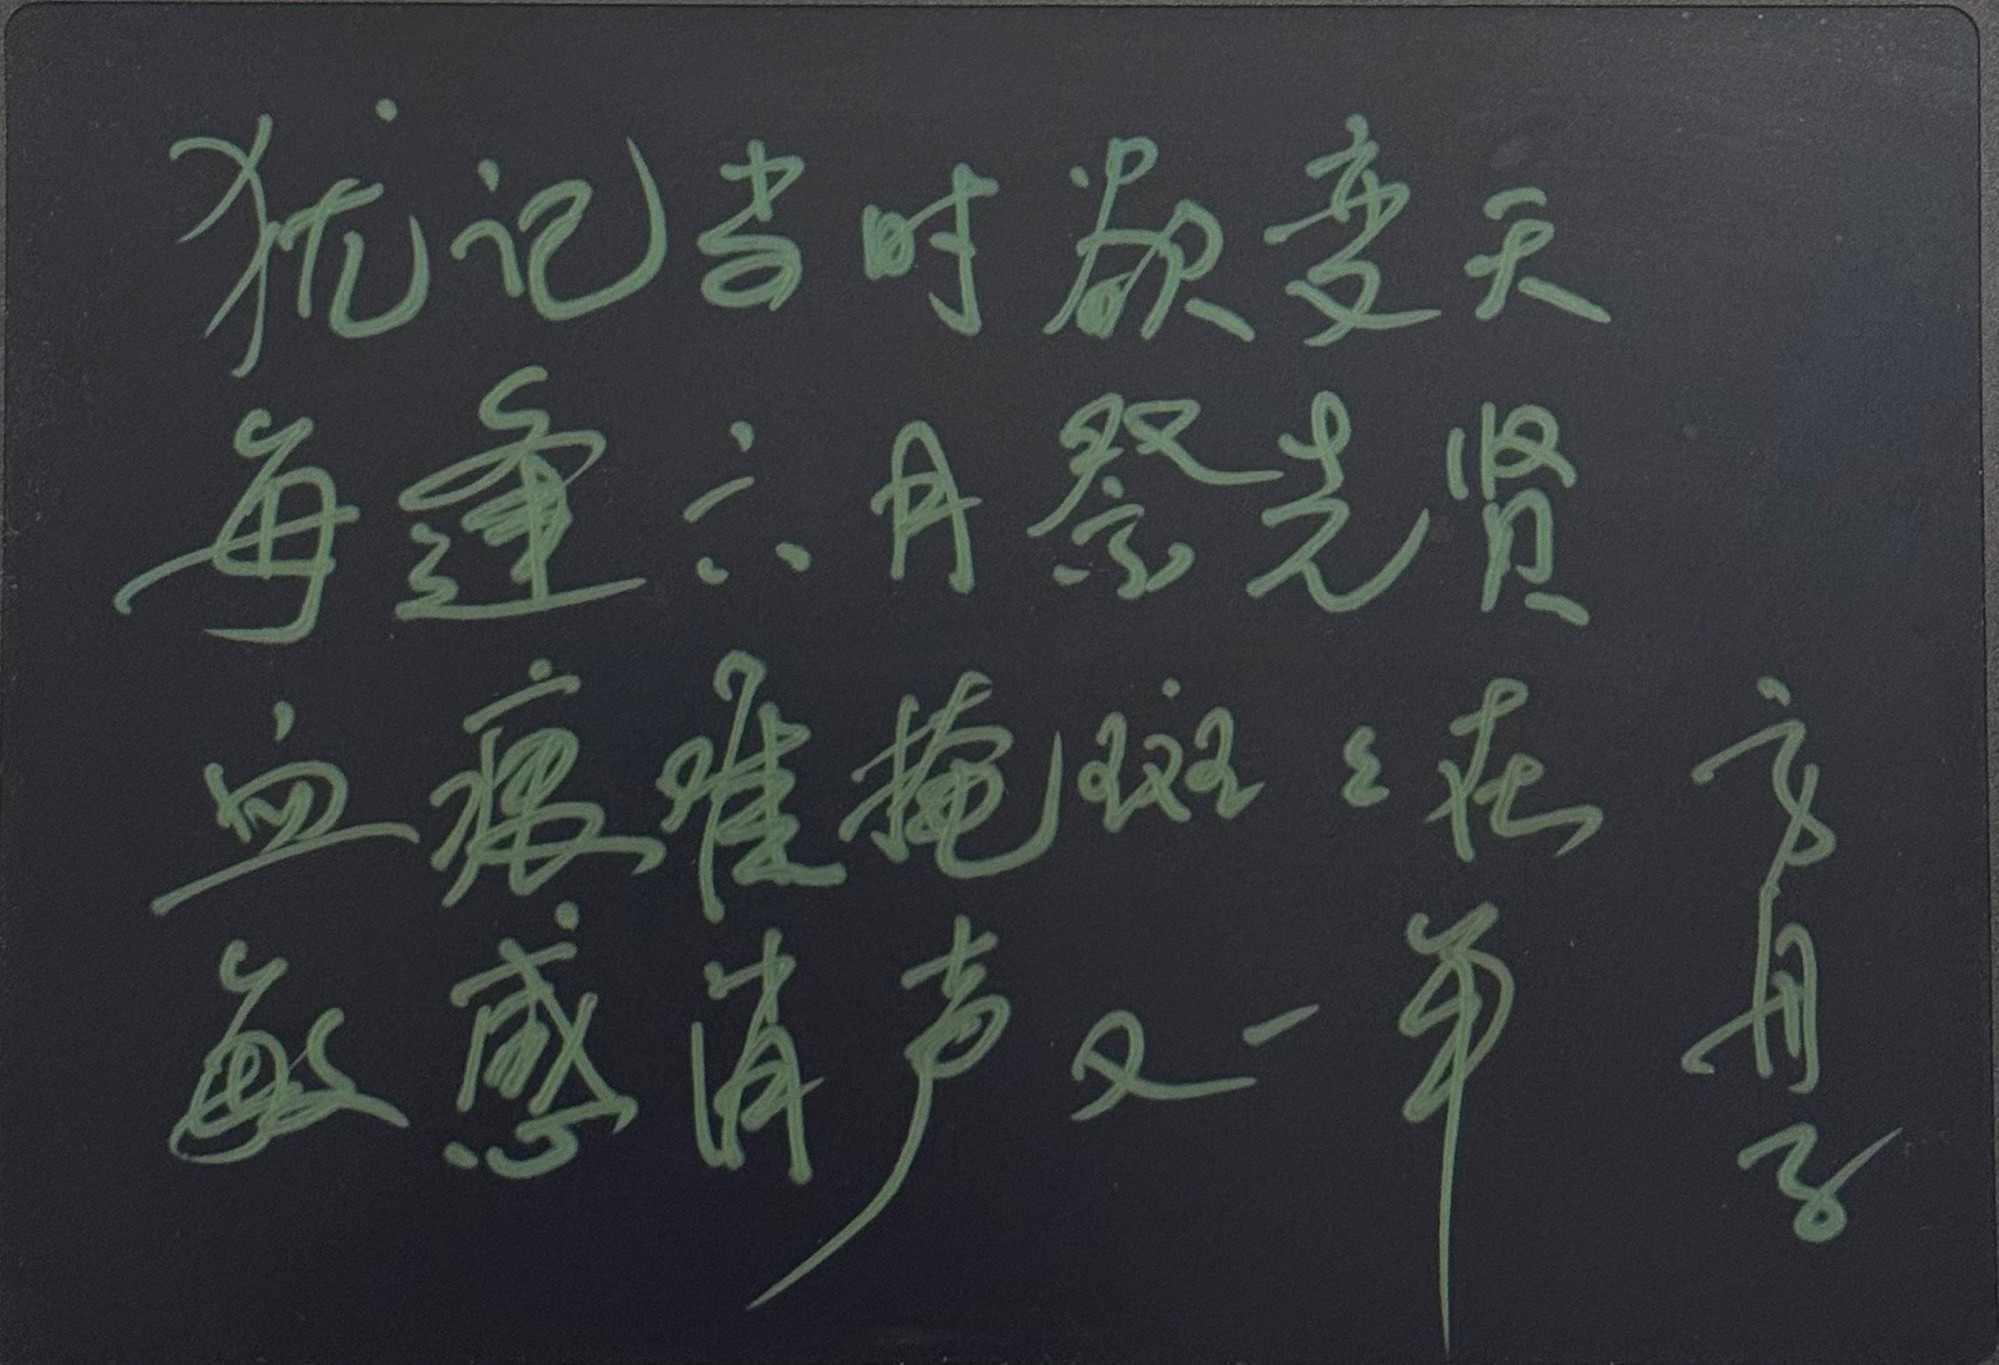 犹记当时欲变天
每逢六月祭先贤
血痕难掩斑々在
敏感消声又一年